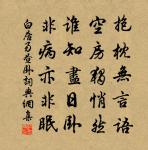 抱枕無言語
空房獨悄然
誰知盡日卧
非病亦非眠
白居易晝卧詞典網集